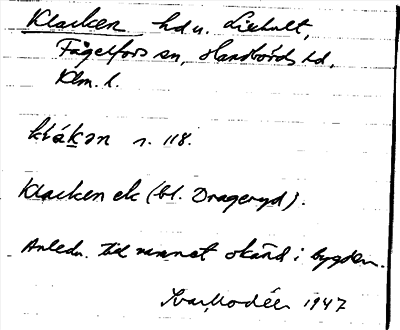 Klacken hd u. Liehult,
Fågelfors sn, Handbörds hd,
Klm. l.
klákən s. 118.
Klacken ek (bl. Drageryd).
Anledn. till namnet okänd i bygden.
Ivar Modéer 1947